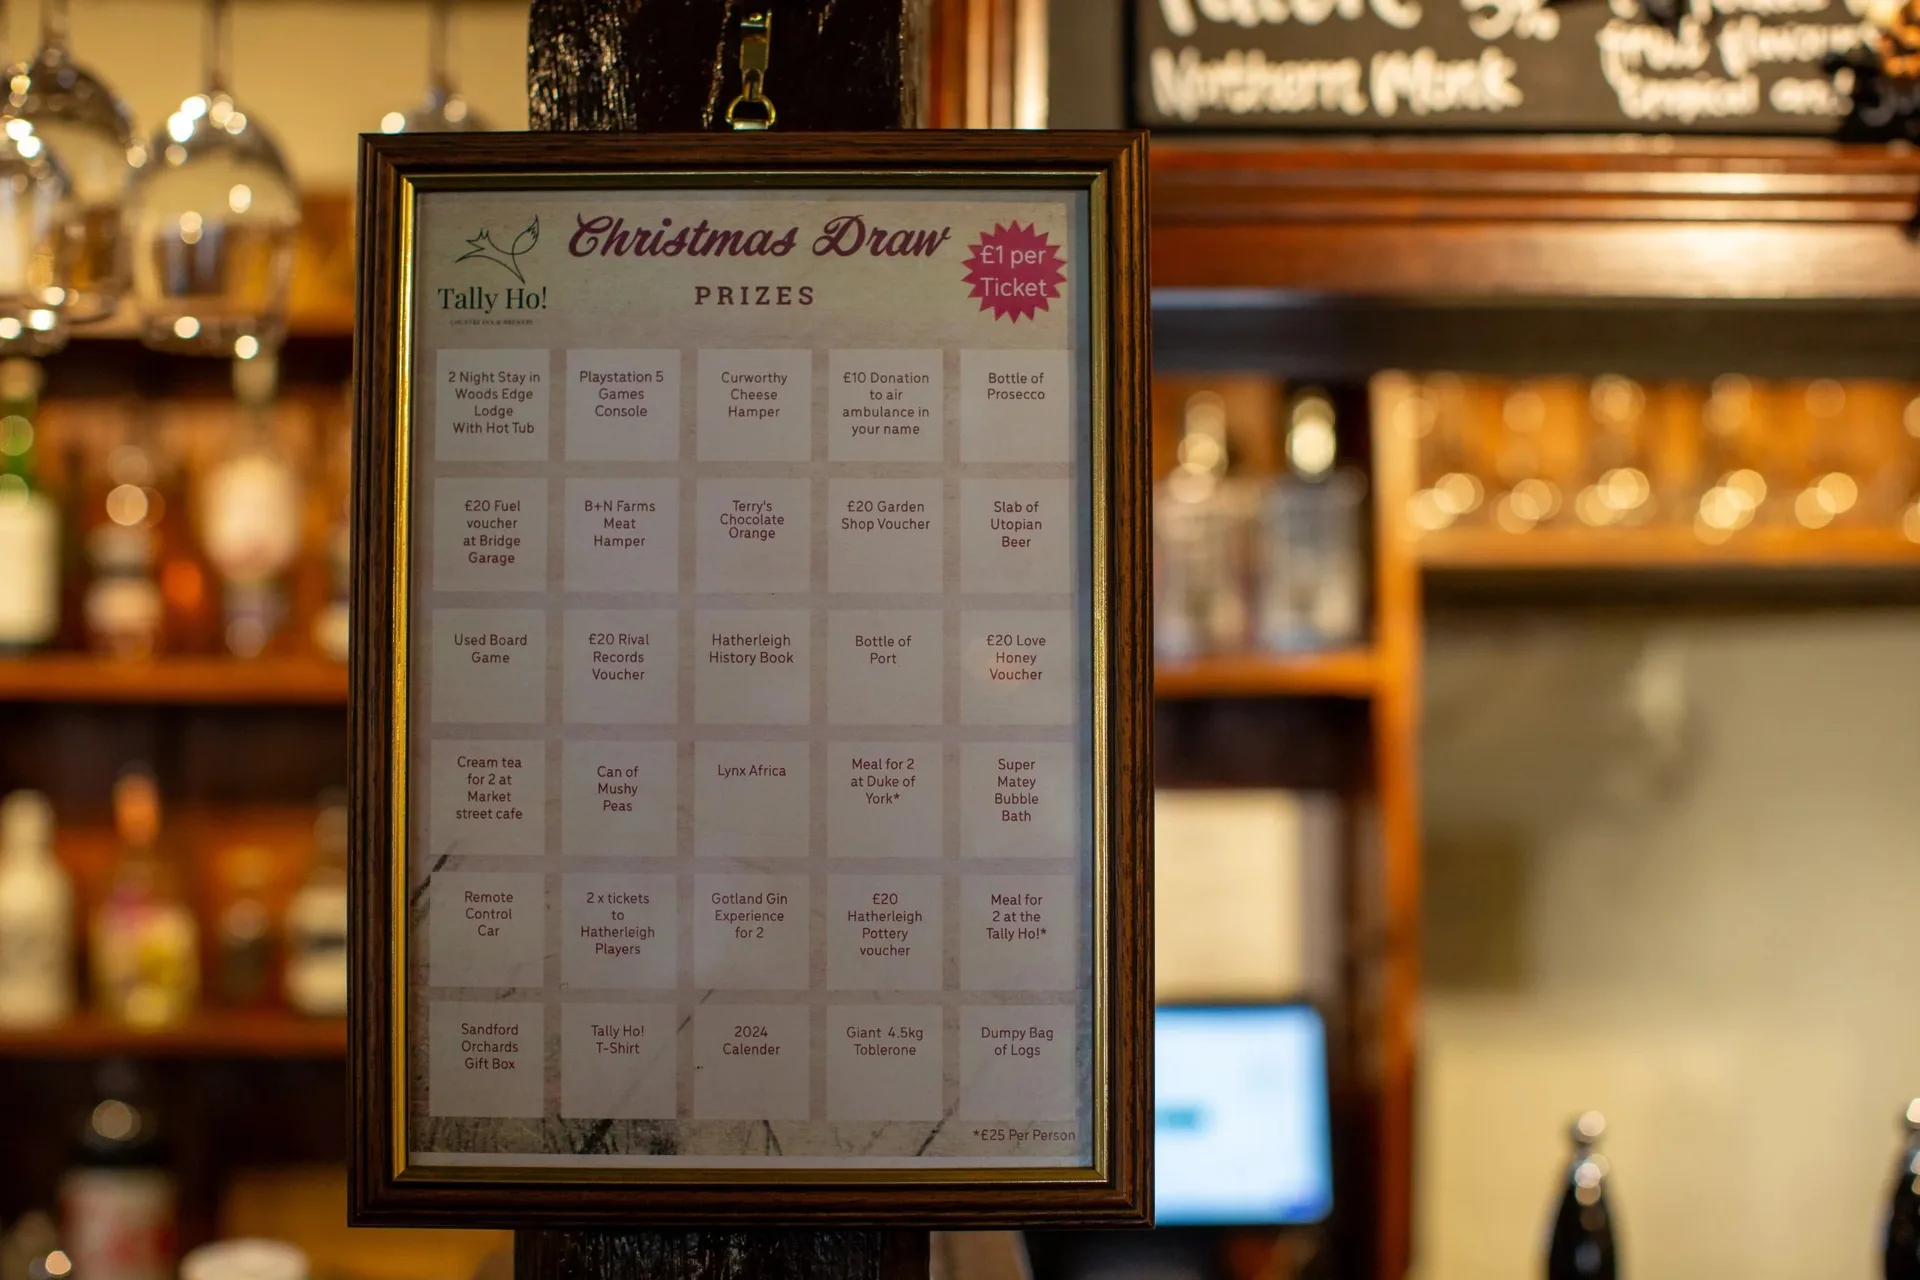 Northern Monk
fruit flavours
tropical and
Christmas Draw
PRIZES
£1 per
Ticket
Tally Ho!
COUNTRY INN & BREWERY
2 Night Stay in
Woods Edge
Lodge
With Hot Tub
Playstation 5
Games
Console
Curworthy
Cheese
Hamper
£10 Donation
to air
ambulance in
your name
Bottle of
Prosecco
£20 Fuel
voucher
at Bridge
Garage
B+N Farms
Meat
Hamper
Terry's
Chocolate
Orange
£20 Garden
Shop Voucher
Slab of
Utopian
Beer
Used Board
Game
£20 Rival
Records
Voucher
Hatherleigh
History Book
Bottle of
Port
£20 Love
Honey
Voucher
Cream tea
for 2 at
Market
street cafe
Can of
Mushy
Peas
Lynx Africa
Meal for 2
at Duke of
York*
Super
Matey
Bubble
Bath
Remote
Control
Car
2 x tickets
to
Hatherleigh
Players
Gotland Gin
Experience
for 2
£20
Hatherleigh
Pottery
voucher
Meal for
2 at the
Tally Ho!*
Sandford
Orchards
Gift Box
Tally Ho!
T-Shirt
2024
Calender
Giant 4.5kg
Toblerone
Dumpy Bag
of Logs
*£25 Per Person